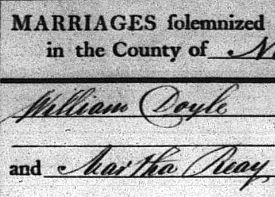 MARRIAGES solemnized
in the County of
William Doyle
and Martha Reay